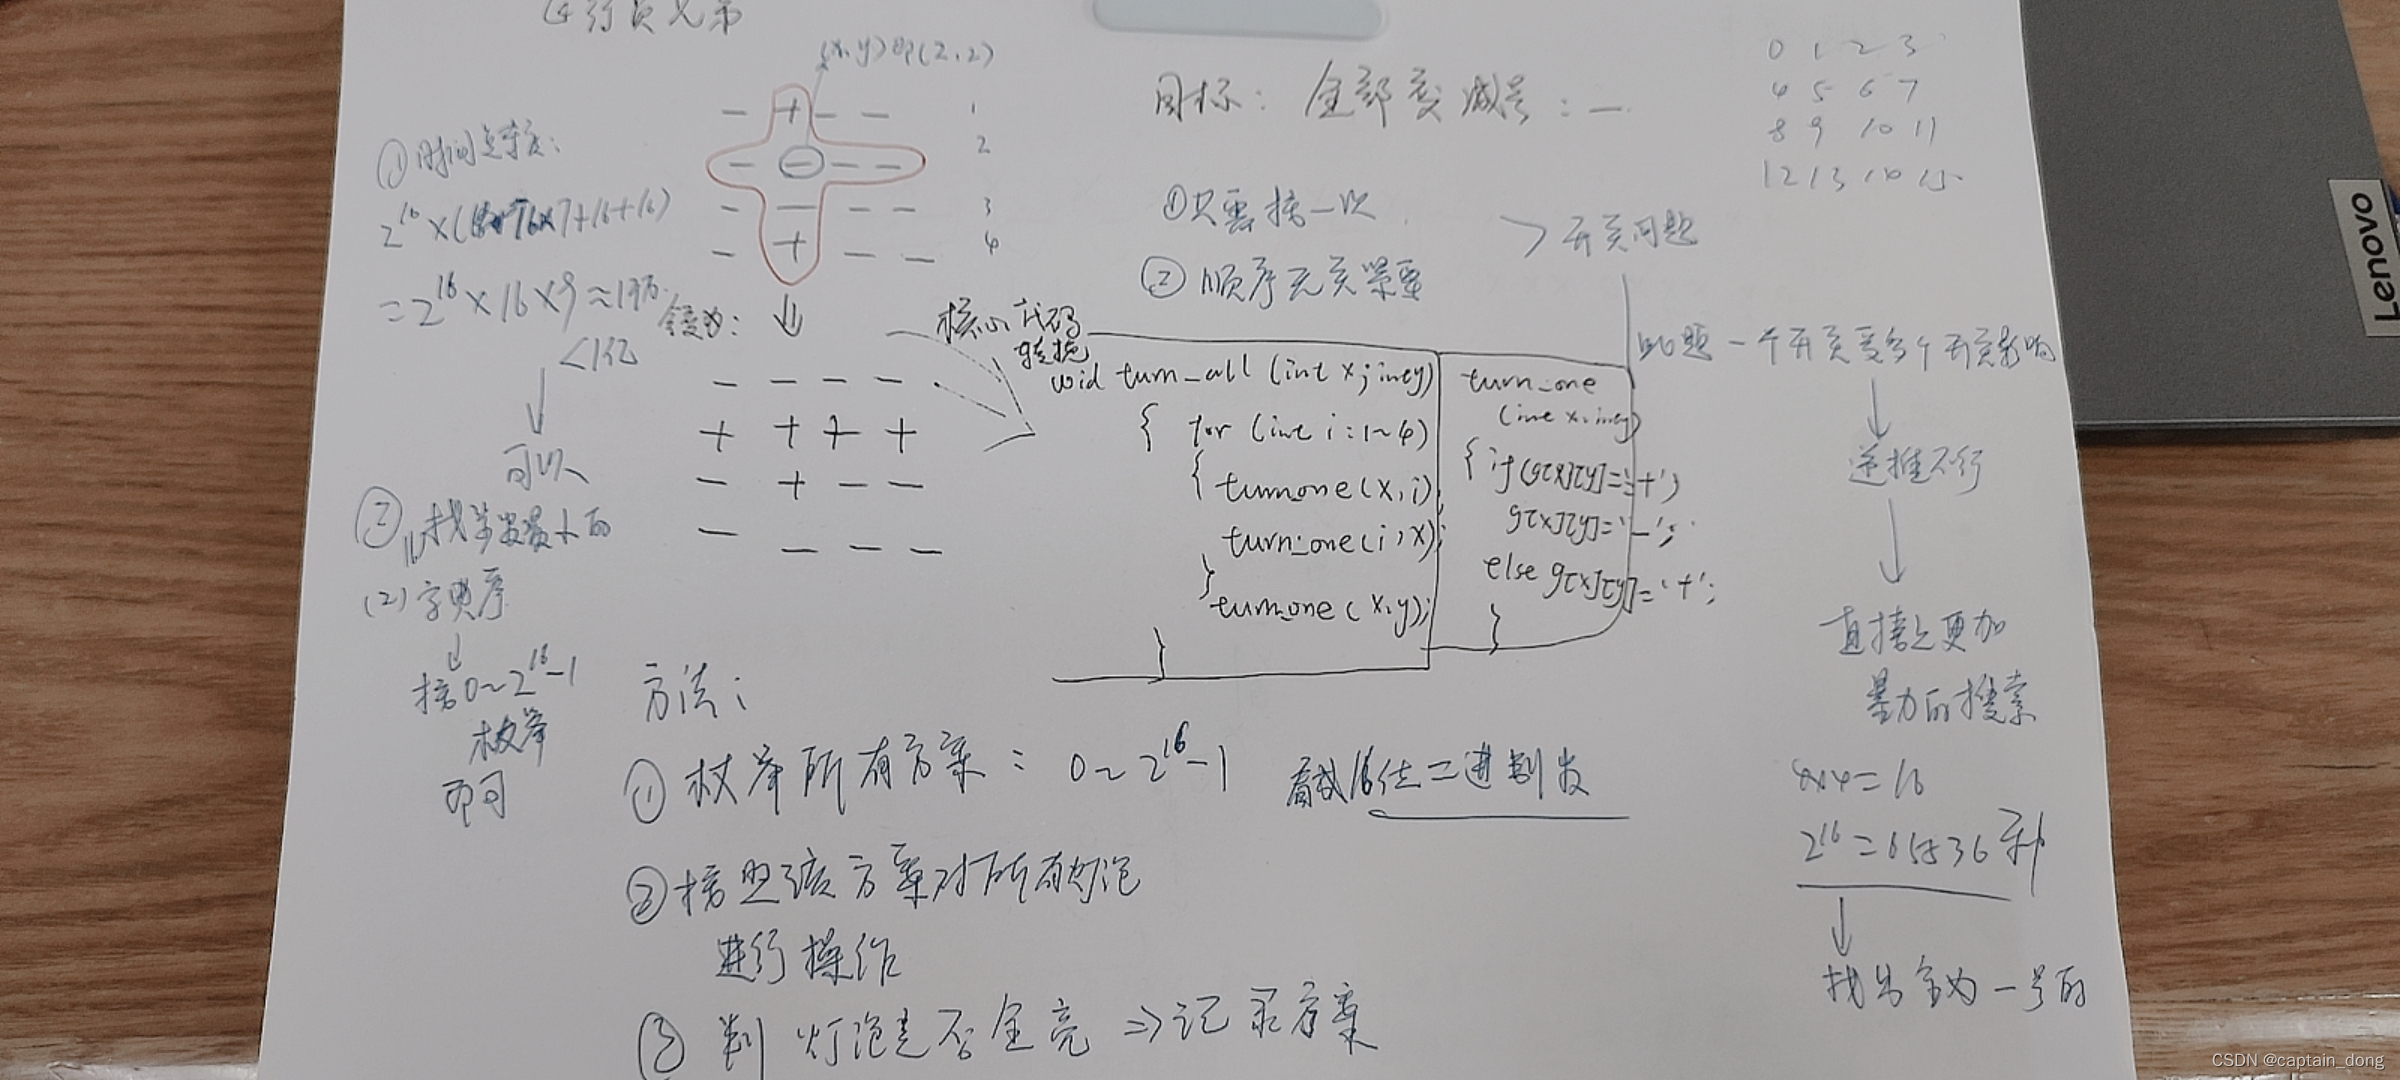 飞行员兄弟
(x,y)即(2,2)
- + - - 1
- - - - 2
- - - - 3
- + - - 4
目标: 全部变减号: -
0 1 2 3
4 5 6 7
8 9 10 11
12 13 14 15
①时间复杂度:
2^16×(16×7+16+16)
=2^16×16×9≈
<1亿
可以
①只需按一次
②顺序无关紧要
> 开关问题
此题一个开关受多个开关影响
递推不行
直接上更加
暴力的搜索
4×4=16
2^16=65536种
找出全为-号的
变为:
- - - -
+ + + +
- + - -
- - - -
核心代码
void turn_all (int x, int y)
{ for (int i:1~4)
{ turnone(x,i);
turn_one(i,x);
}
turn_one(x,y);
}
turn_one
(int x, int y)
{ if(g[x][y]=='+')
g[x][y]='-';
else g[x][y]='+';
}
②(1)找步数最小的
(2)字典序
按0~2^16-1
枚举
即可
方法:
①枚举所有方案: 0~2^16-1 看成16位二进制数
②按照该方案对所有灯泡
进行操作
③判 灯泡是否全亮 ⇒记录方案
Lenovo
CSDN @captain_dong